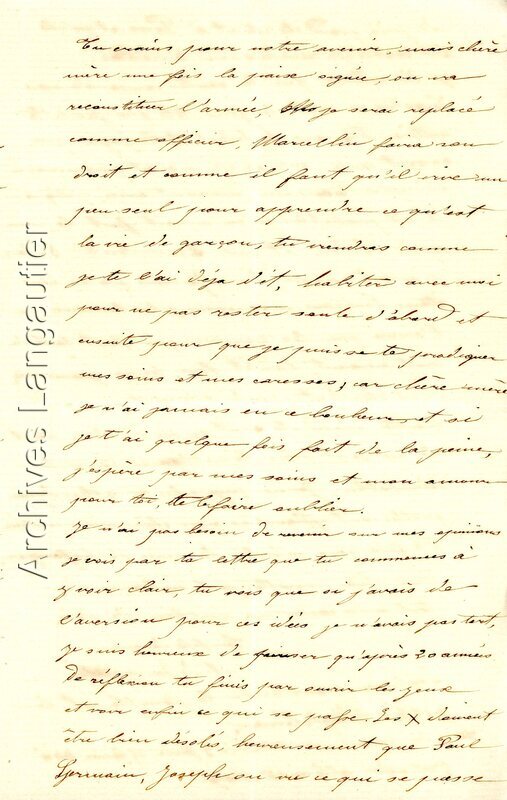 Tu crains pour notre avenir, mais chère
mère une fois la paix signée, on va
reconstituer l'armée, je serai replacé
comme officier, Marcellin faira son
droit et comme il faut qu'il vive un
peu seul pour apprendre ce qu'est
la vie de garçon, tu viendras comme
je te l'ai déja dit, habiter avec moi
pour ne pas rester seule d'abord et
ensuite pour que je puisse te prodiguer
mes soins et mes caresses, car chère mère
je n'ai jamais eu ce bonheur, et si
je t'ai quelque fois fait de la peine,
j'espère par mes soins et mon amour
pour toi, te le faire oublier.
Je n'ai pas besoin de revenir sur mes opinions
je vois par ta lettre que tu commences à
y voir clair, tu vois que si j'avais de
l'aversion pour ces idées je n'avais pas tort,
je suis heureux de penser qu'après 20 années
de réflexion tu finis par ouvrir les yeux
et voir enfin ce qui se passe. Les X doivent
être bien désolés, heureusement que Paul
Germain, Joseph on vu ce qui se passe
Archives Langautier